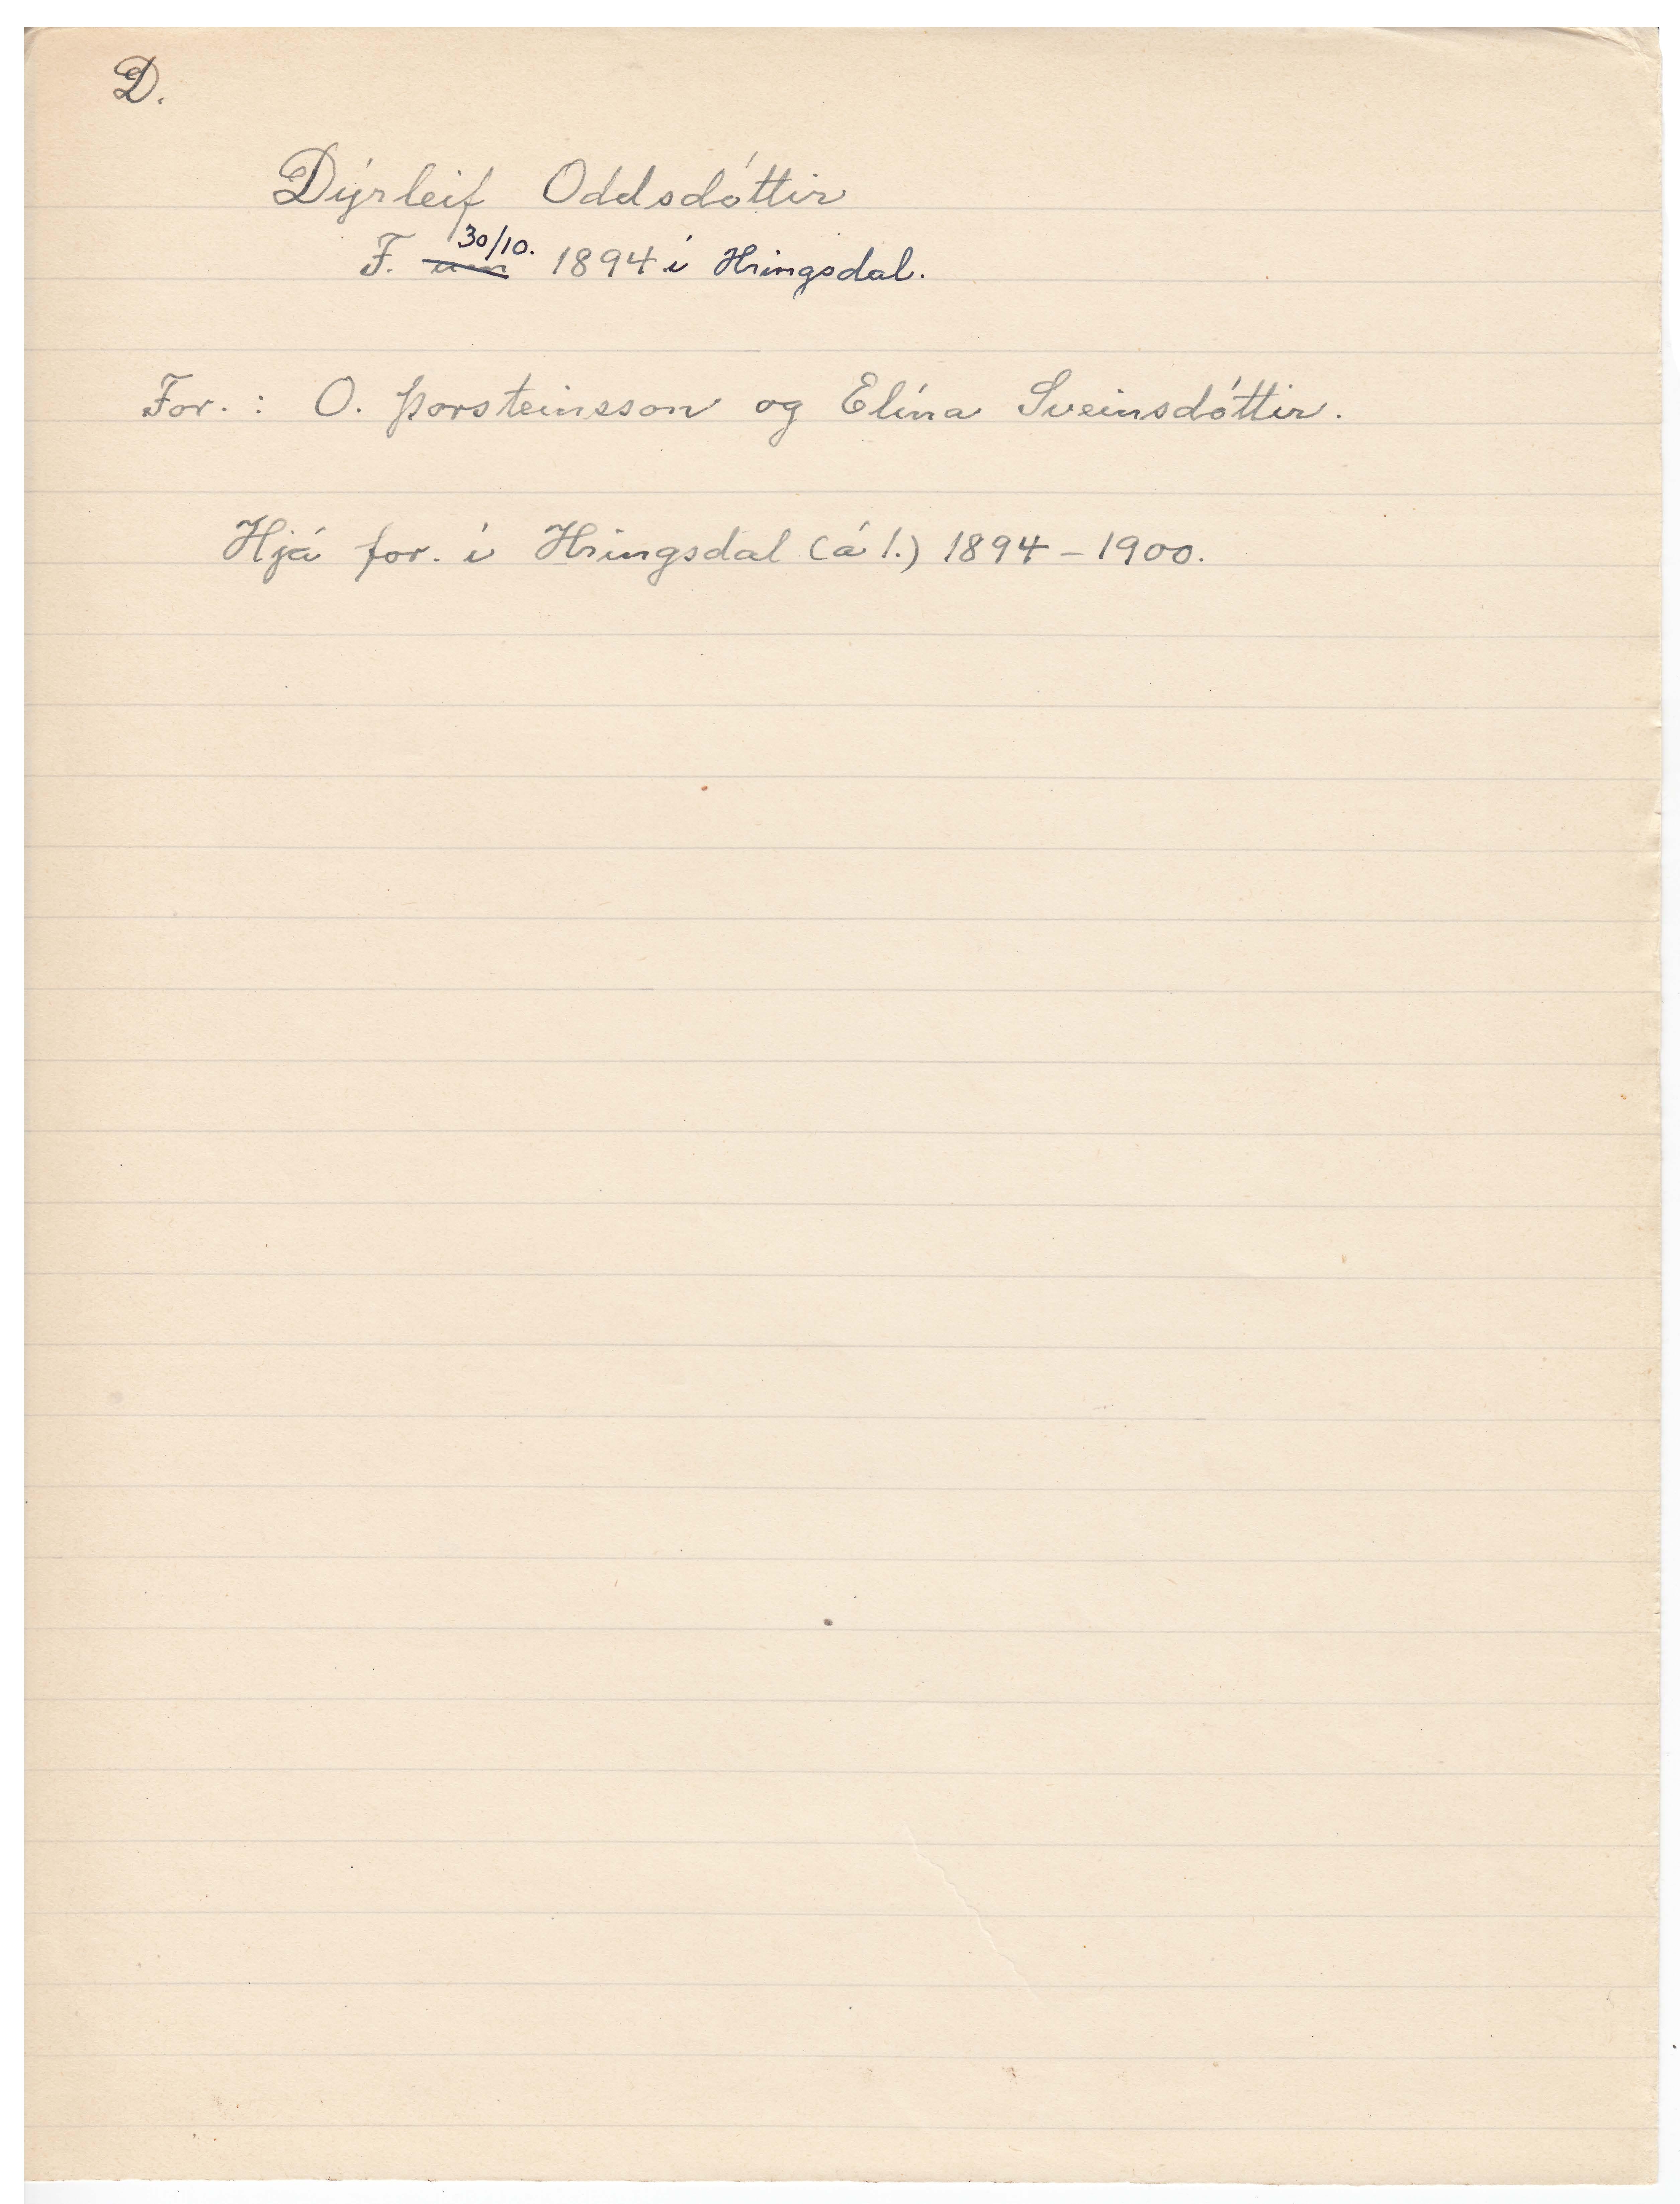 D.
Dýrleif Oddsdóttir
F. um 30/10. 1894 í Hringsdal.
For. : O. Þorsteinsson og Elína Sveinsdóttir.
Hjá for. í Hringsdal (á 1.) 1894 – 1900.